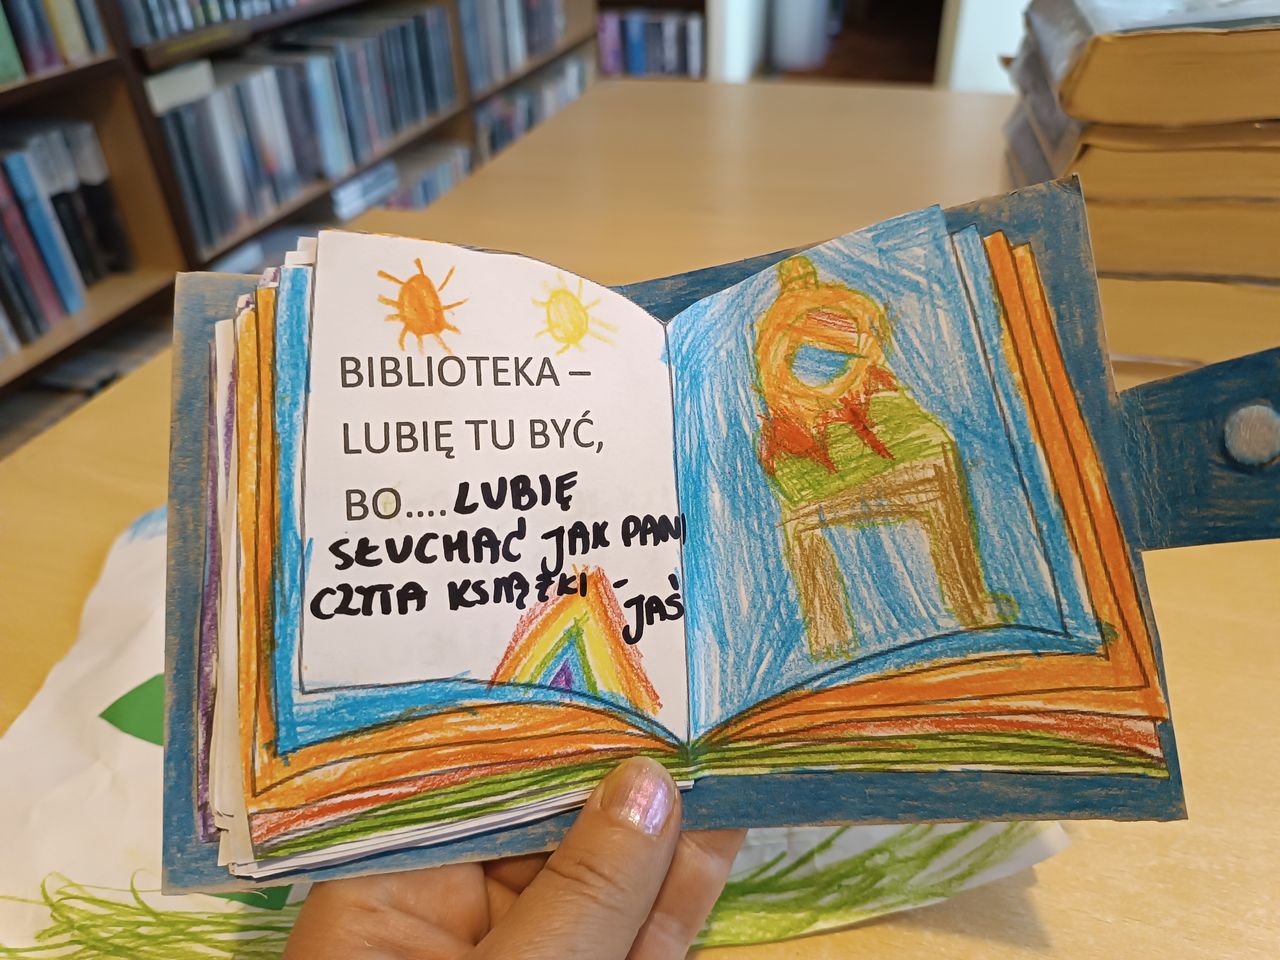 BIBLIOTEKA –
LUBIĘ TU BYĆ,
BO.... LUBIĘ
SŁUCHAĆ JAK PANI
CZYTA KSIĄŻKI –
JAŚ